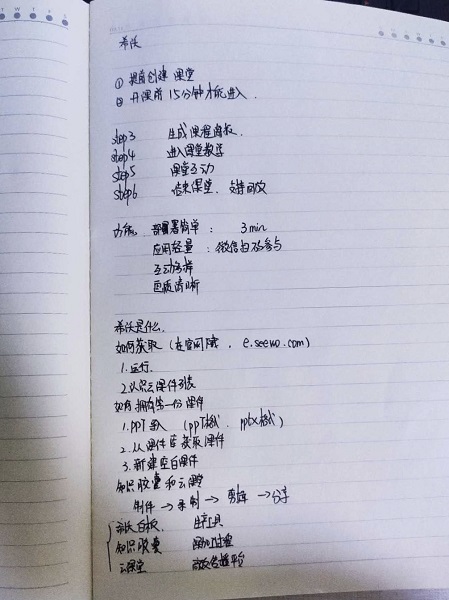 希沃
① 提前创建课堂
② 开课前15分钟才能进入.
step3 生成课程海报.
step4 进入课堂教学
step5 课堂互动
step6 结束课堂、支持回放
功能: 部署简单: 3min
应用轻量: 微信扫码参与
互动多样
画质清晰
希沃是什么.
如何获取(在官网下载, e.seewo.com)
1.运行.
2.认识云课件列表
如何拥有第一份课件
1.PPT导入 (ppt格式. pptx格式)
2.从课件库获取课件
3.新建空白课件
知识胶囊和云课堂
制件→录制→剪辑→分享
希沃白板. 生产工具
知识胶囊
云课堂 平台